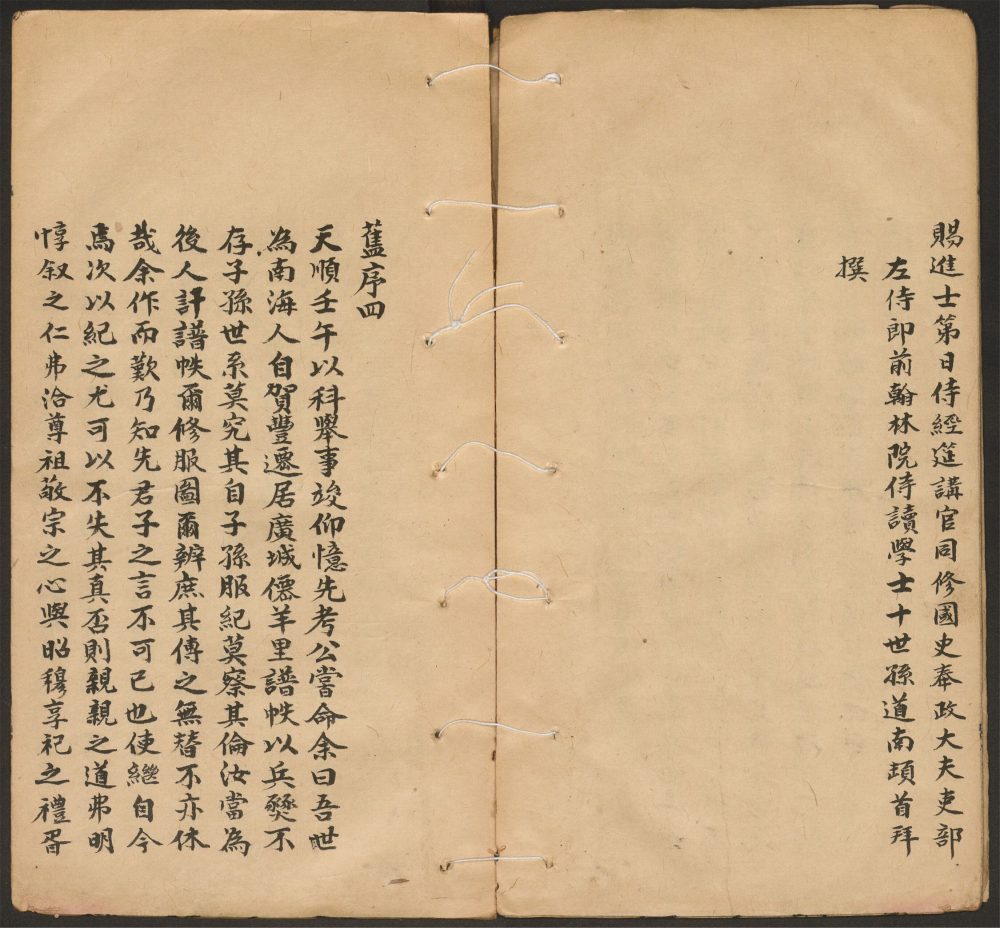 賜進士第日侍經筵講官同修國史奉政大夫吏部
左侍郎前翰林院侍讀學士十世孫道南頓首拜
撰
舊序四
天順壬午以科舉事竣仰憶先考公嘗命余曰吾世
為南海人自賀豐遷居廣城僊羊里譜帙以兵燹不
存子孫世系莫究其自子孫服紀莫察其倫汝當為
後人訂譜帙爾修服圖爾辨庶其傳之無替不亦休
哉余作而歎乃知先君子之言不可已也使繼自今
焉次以紀之尤可以不失其真否則親親之道弗明
惇叙之仁弗洽尊祖敬宗之心與昭穆享祀之禮胥